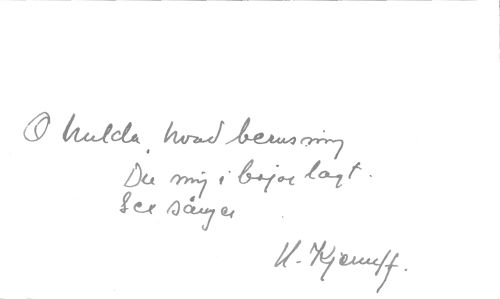 O hulda, hvad berusning
Du mig i bojor lagt.
See sånger
H. Kjerulf.